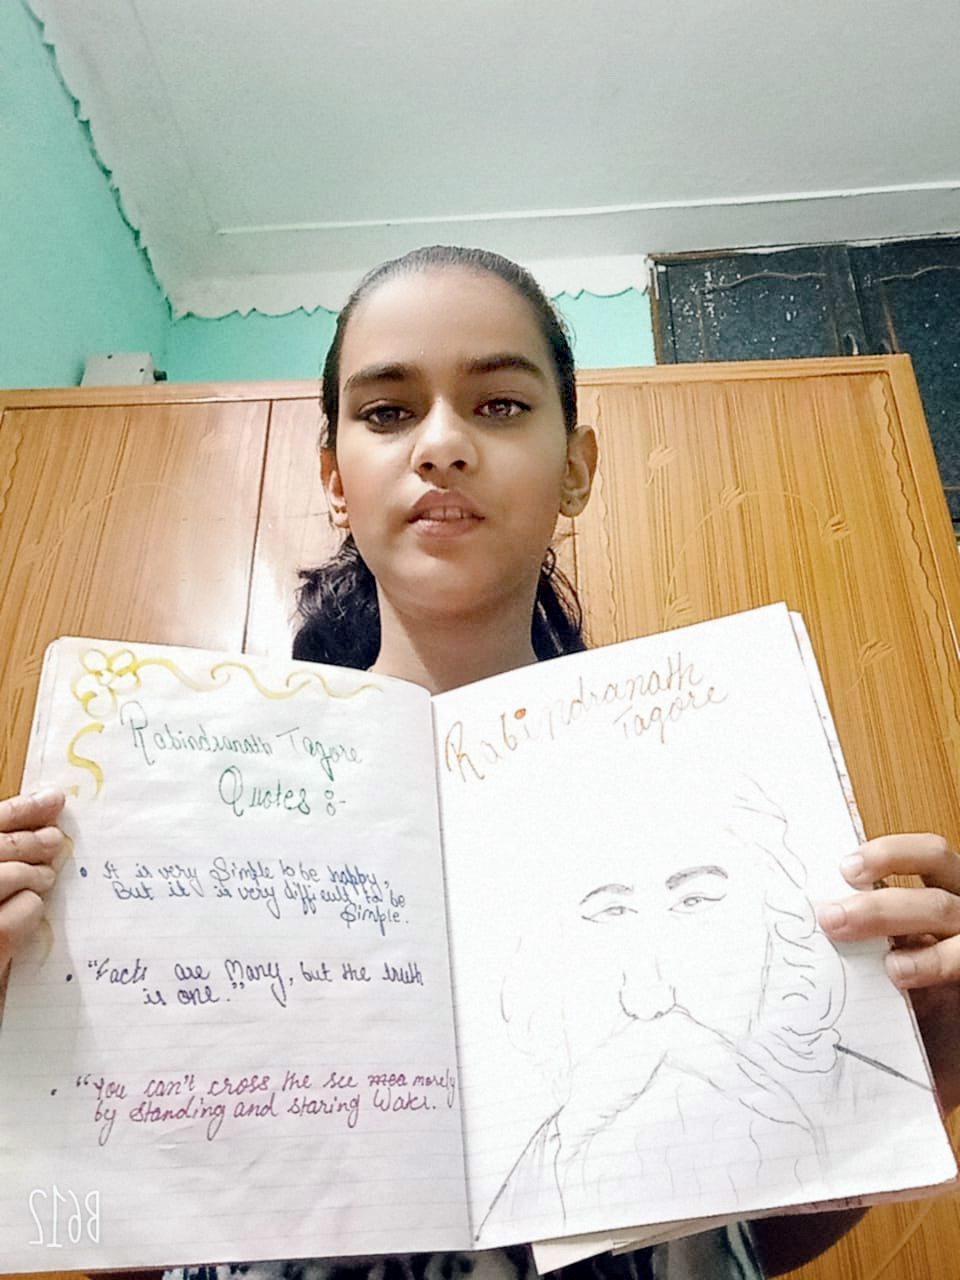 Rabindranath Tagore
Quotes :-
• It is very Simple to be happy,
But it is very difficult to be
Simple.
• "Facts are Many, but the truth
is one."
• "You can't cross the see mea merely
by standing and staring Water.
Rabindranath
Tagore
B612